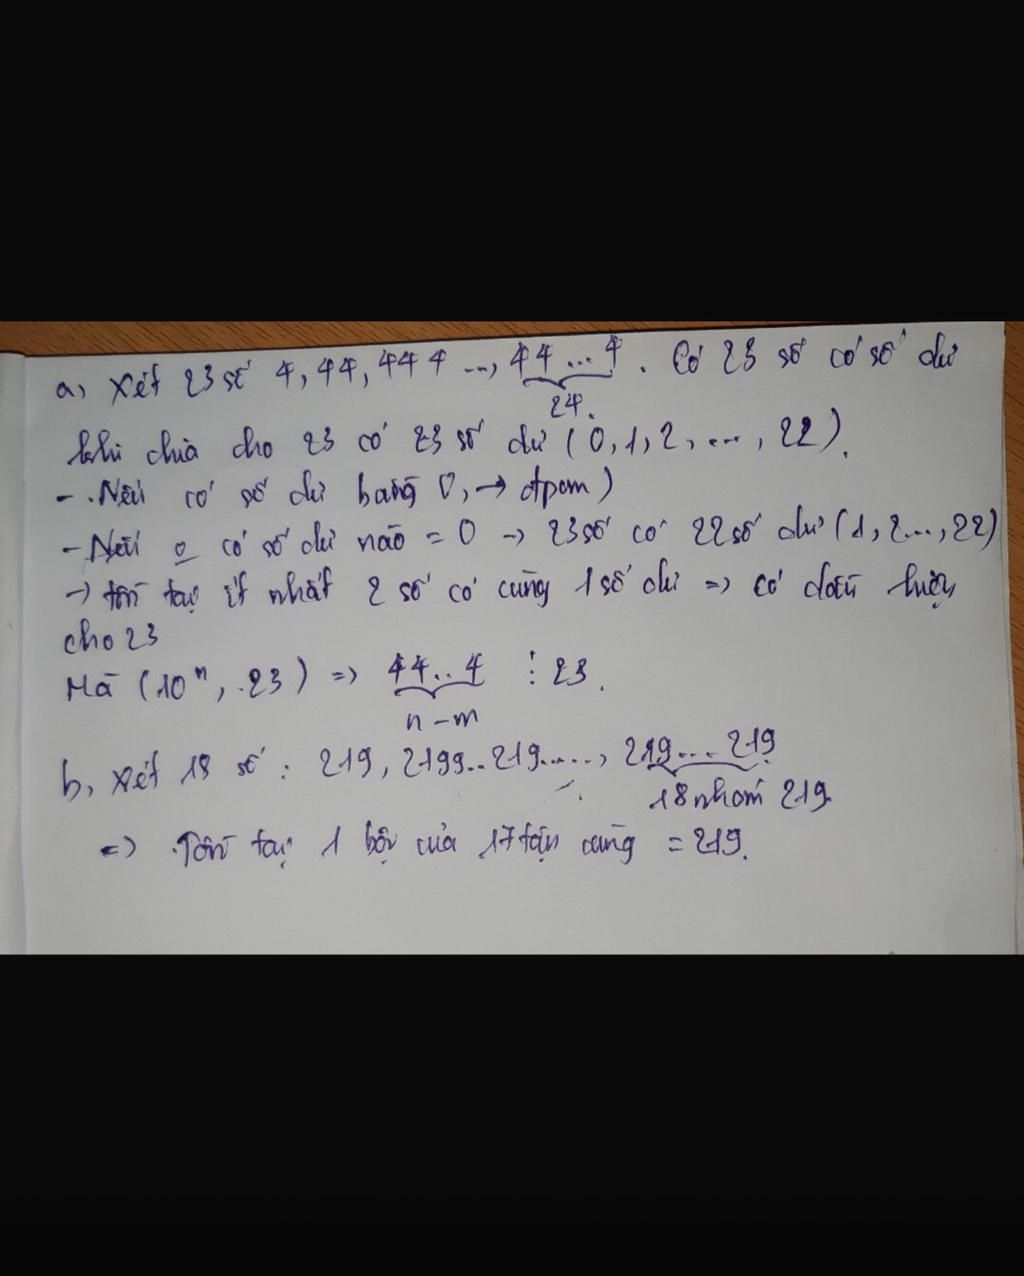 a, Xét 23 số 4, 44, 444 ..., 44...4. Có 23 số có số dư
24.
khi chia cho 23 có 23 số dư (0, 1, 2, ..., 22).
- Nếu có số dư bằng 0, → đpcm)
- Nếu o có số dư nào = 0 → 23 số có 22 số dư (1, 2..., 22)
→ tồn tại ít nhất 2 số có cùng 1 số dư => có hiệu
cho 23
Mà (10ⁿ, 23) => 44..4 ⋮ 23.
n - m
b, Xét 18 số : 219, 2199..219....., 219...219
18 nhóm 219.
=> Tồn tại 1 bội của 17 tận cùng = 219.